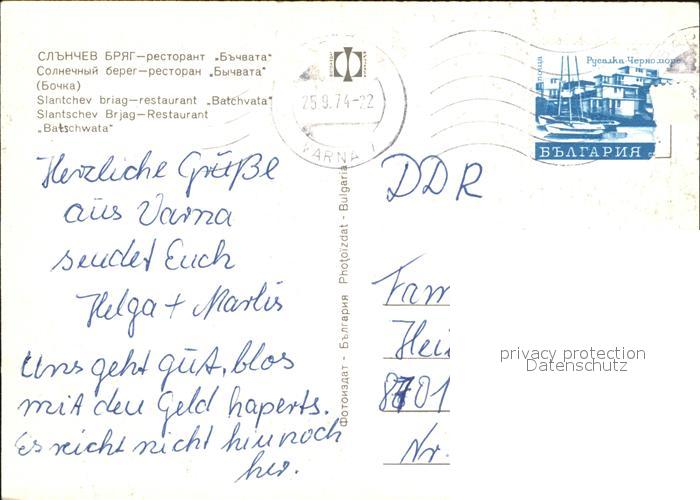 СЛЪНЧЕВ БРЯГ—ресторант „Бъчвата"
Солнечный берег—ресторан „Бычвата"
(Бочка)
Slantchev briag—restaurant „Batchvata"
Slantschev Brjag—Restaurant
„Batschwata"
25.9.74-22
VARNA 1
поща
Русалка-Черноморе
БЪЛГАРИЯ
Herzliche Grüße
aus Varna
sendet Euch
Helga + Marlis
Uns geht gut, blos
mit den Geld haperts.
Es reicht nicht hin noch
her.
Фотоиздат - България Photoizdat - Bulgaria
DDR
Fam
Hei
8701
Nr.
privacy protection
Datenschutz